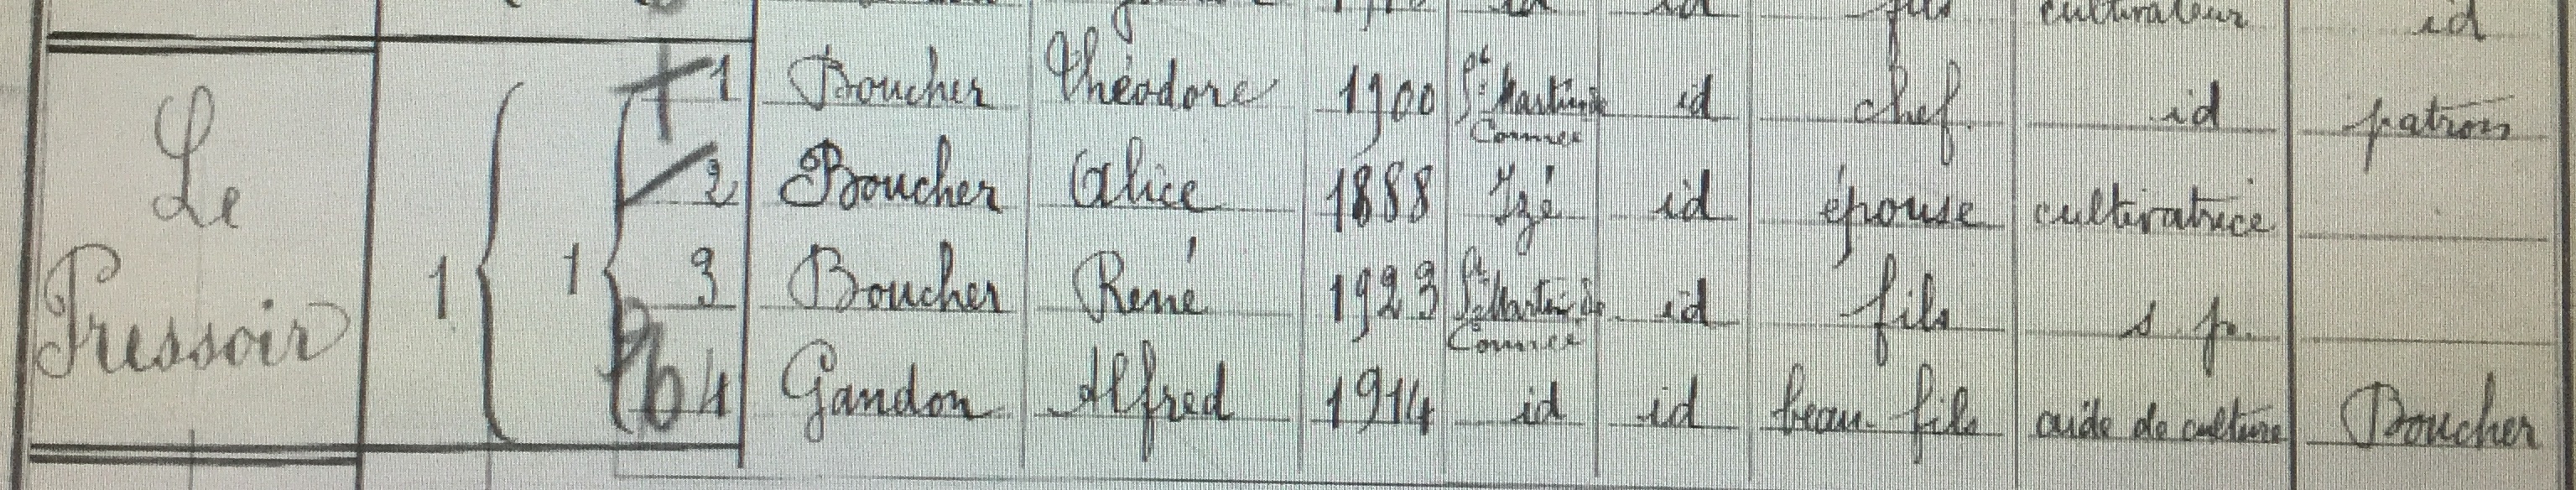 fils cultivateur id
1 Boucher Théodore 1900 St Martin de Connée id chef id patron
Le Pressoir 1 1
2 Boucher Alice 1888 Izé id épouse cultivatrice
3 Boucher René 1923 St Martin de Connée id fils s p.
4 Gandon Alfred 1914 id id beau-fils aide de culture Boucher